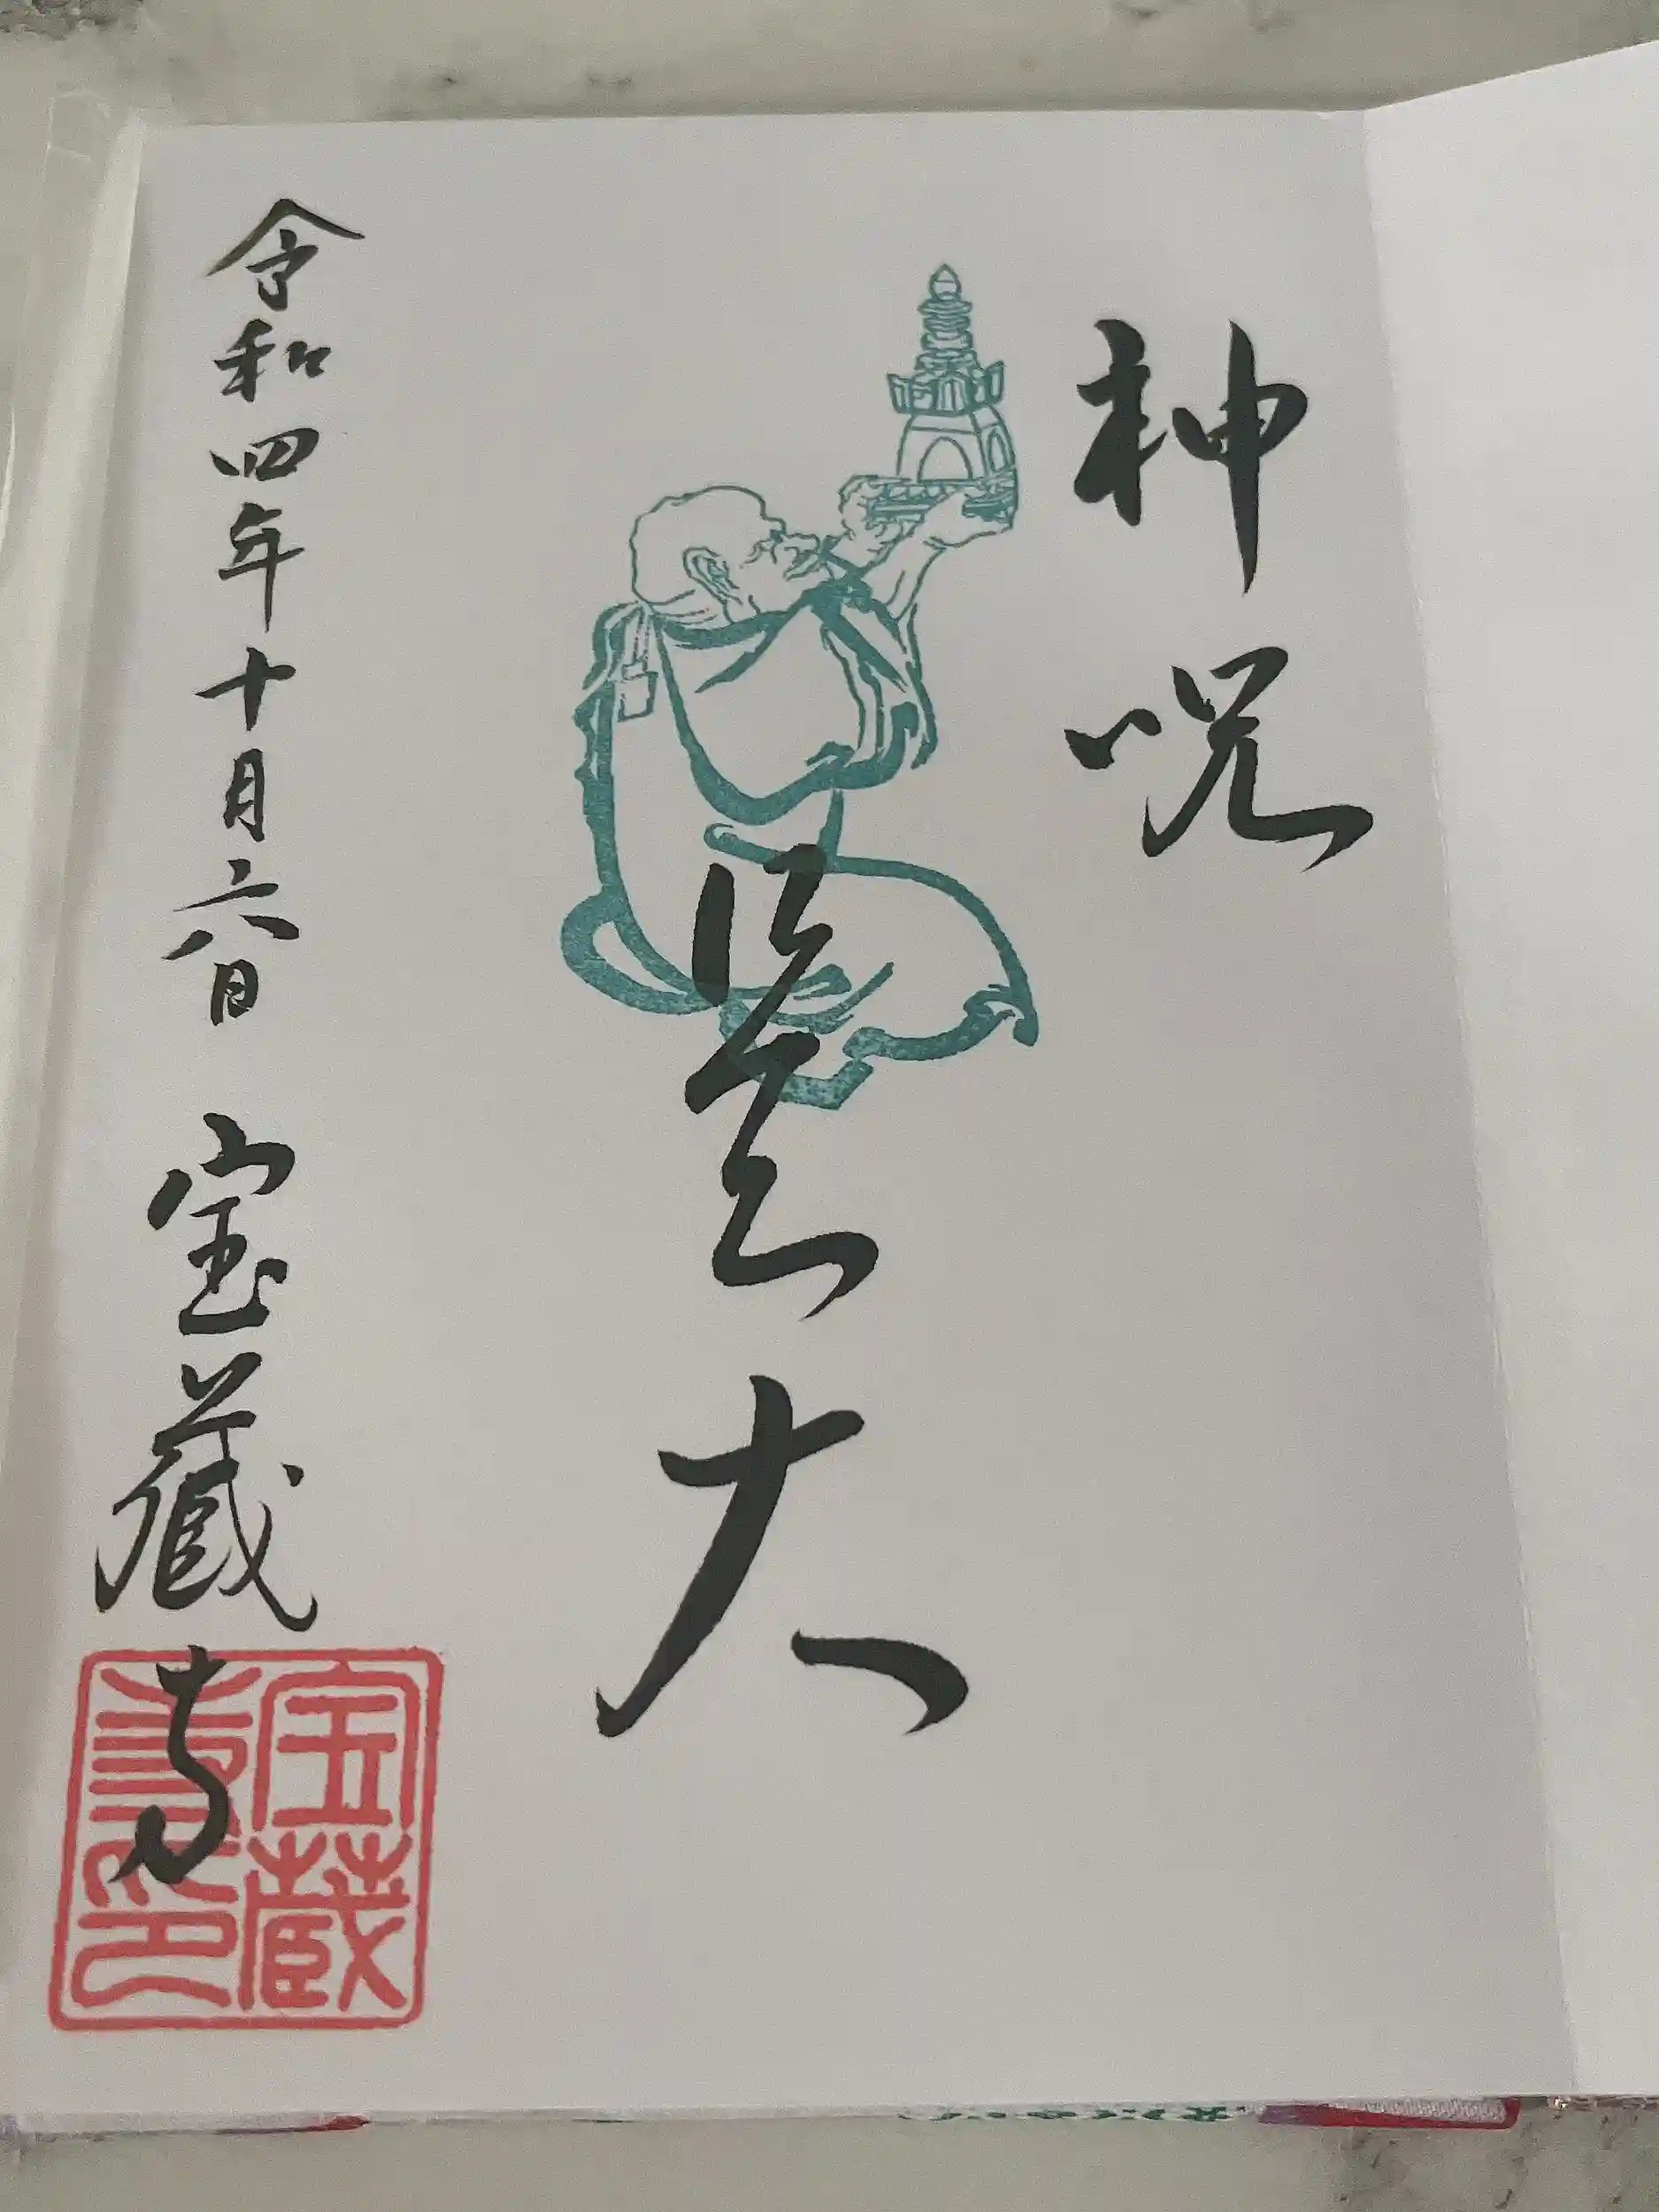 神呪
大
令和四年十月六日 宝蔵寺
宝蔵
寺印